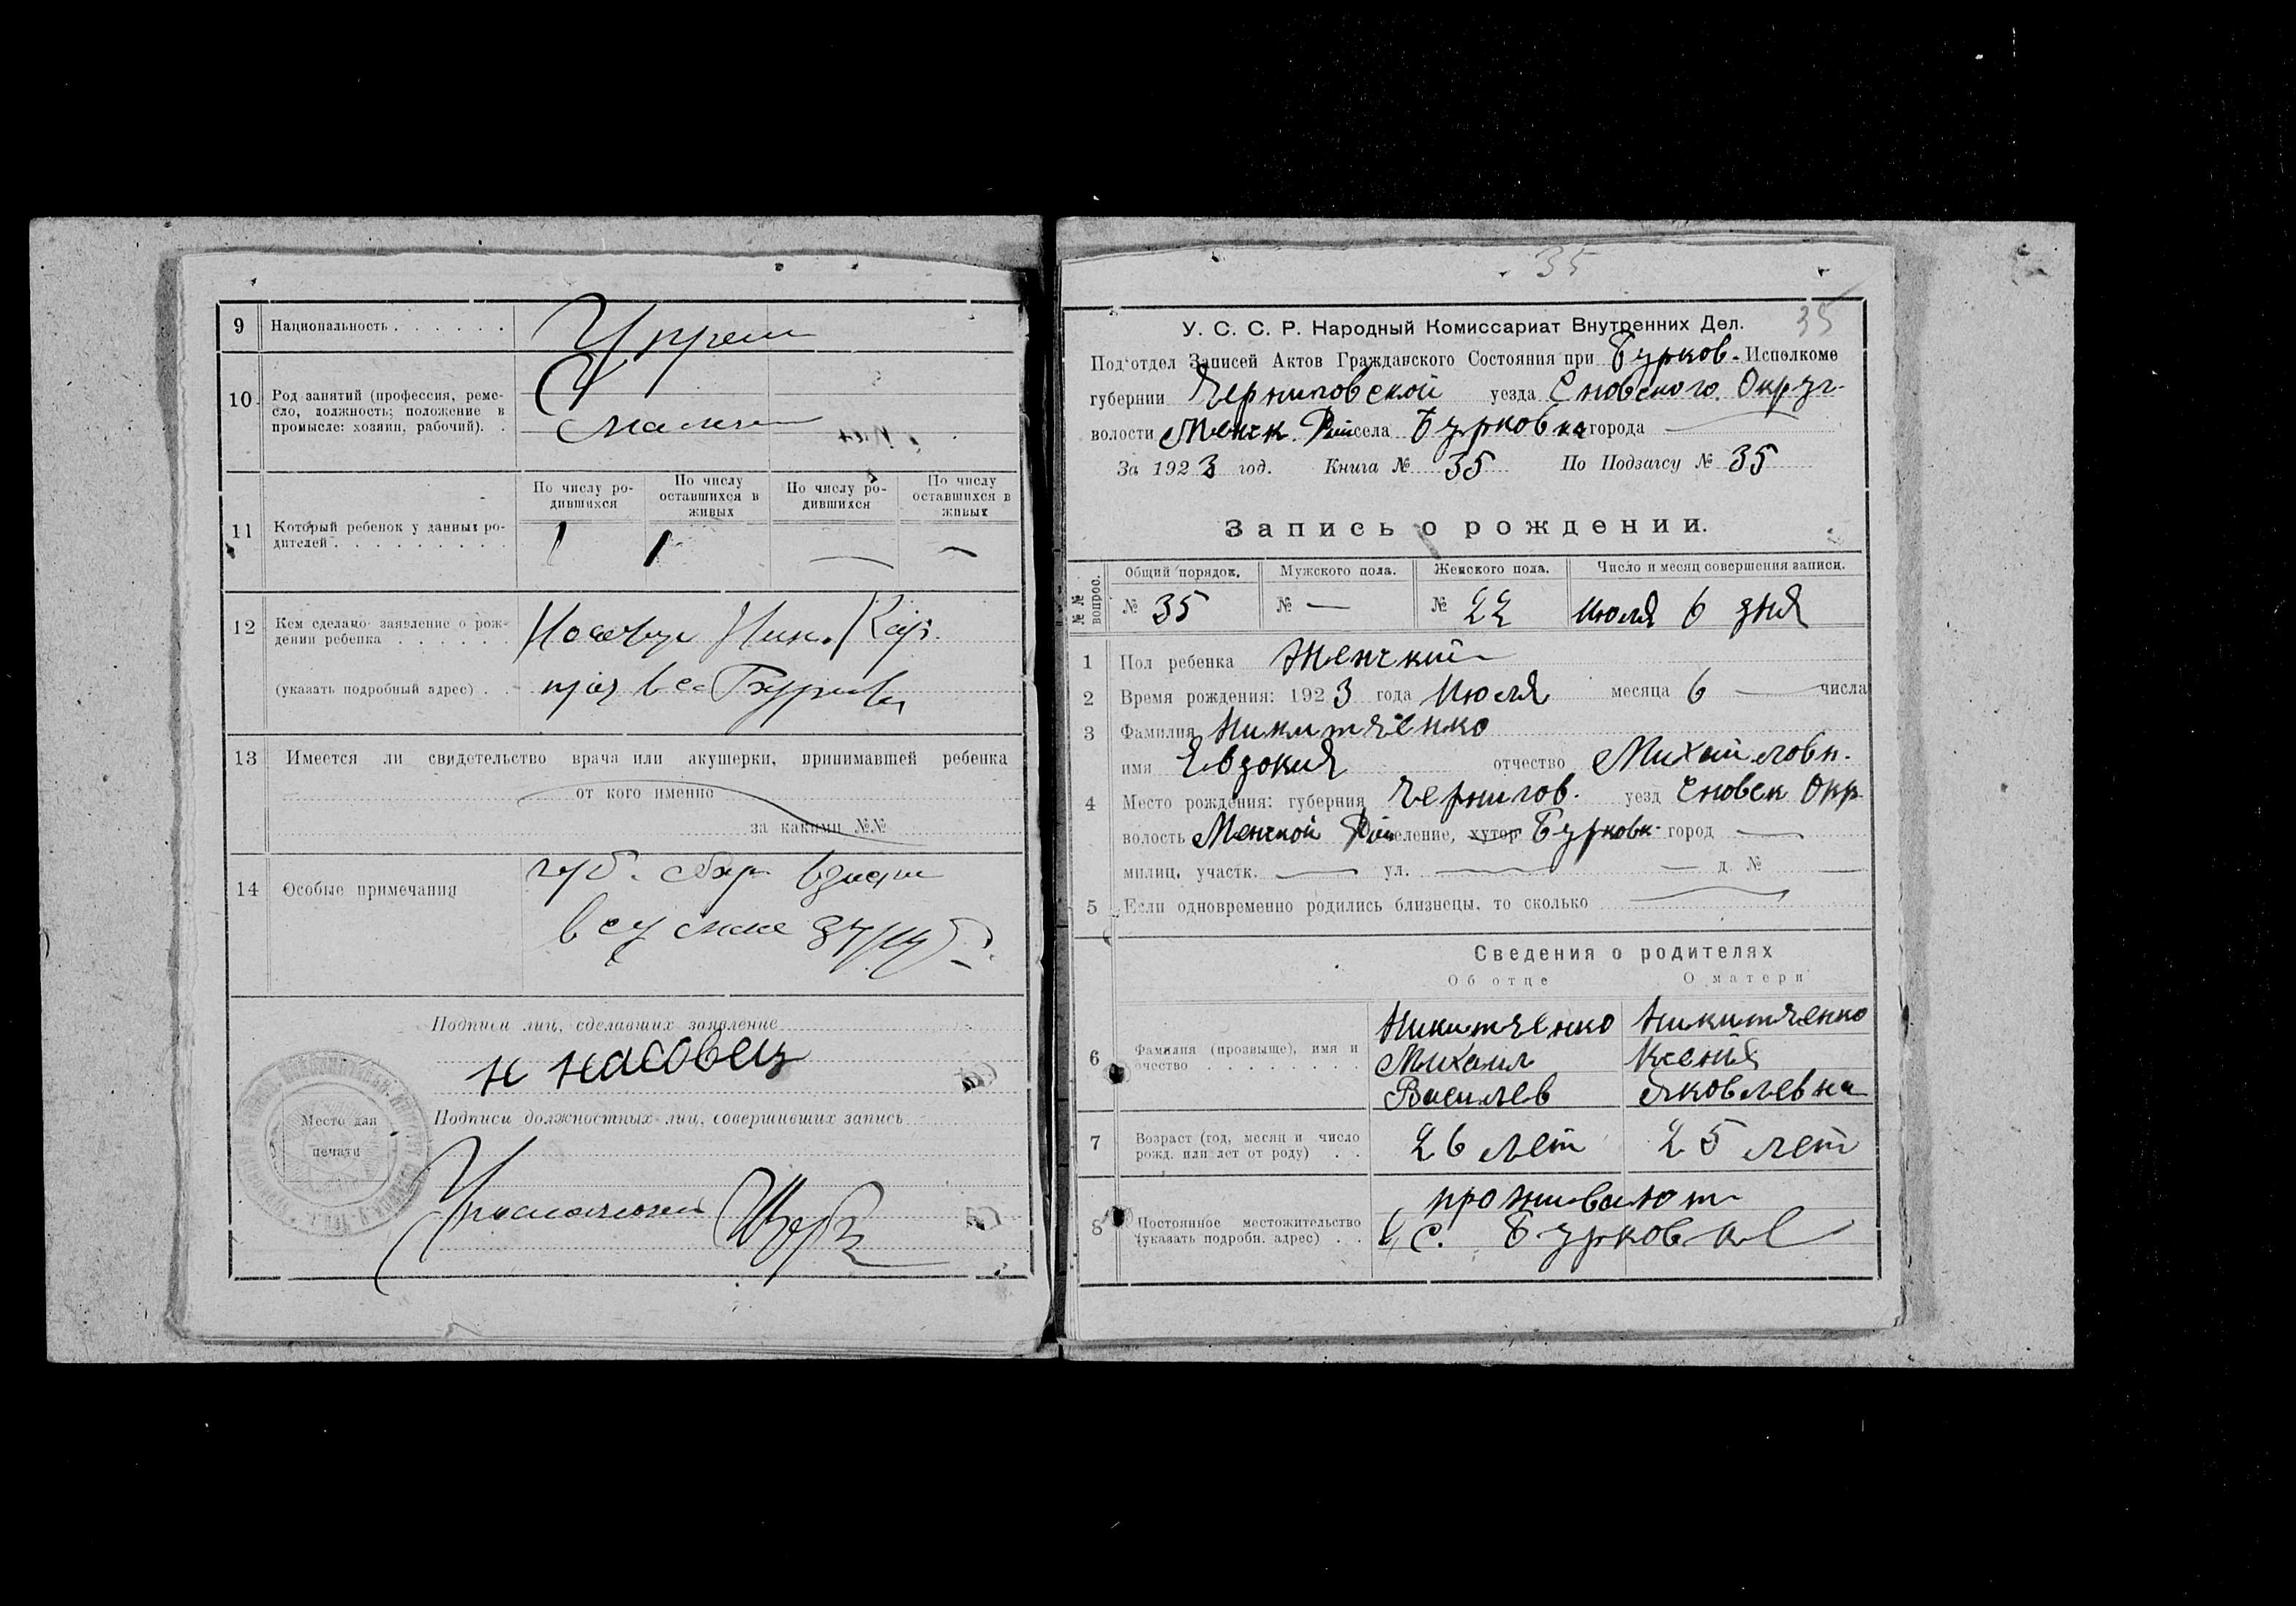 9 Национальность . . . . . .
10 Род занятий (профессия, реме-
сло, должность; положение в
промысле: хозяин, рабочий). .
11 Который ребенок у данных ро-
дителей . . . . . . . . .
По числу ро-
дившихся
По числу
оставшихся в
живых
По числу ро-
дившихся
По числу
оставшихся в
живых
1 1 — —
12 Кем сделано заявление о рож-
дении ребенка . . . . . .
(указать подробный адрес) . .
13 Имеется ли свидетельство врача или акушерки, принимавшей ребенка
от кого именно
за какими №№
14 Особые примечания
Подписи лиц, сделавших заявление
Н Насовец
Место для
печати
Подписи должностных лиц, совершивших запись
35
35
У. С. С. Р. Народный Комиссариат Внутренних Дел.
Под'отдел Записей Актов Гражданского Состояния при Бурков. Исполкоме
губернии Черниговской уезда Сновского Округ.
волости Менск. Рай села Бурковка города —
За 1923 год. Книга № 35 По Подзагсу № 35
Запись о рождении.
№ № вопрос.
Общий порядок. Мужского пола. Женского пола. Число и месяц совершения записи.
№ 35 № — № 22 Июля 6 дня
1 Пол ребенка Женский
2 Время рождения: 1923 года Июля месяца 6 — числа
3 Фамилия Никитченко
имя Евдокия отчество Михайловн.
4 Место рождения: губерния Чернигов. уезд Сновск Окр
волость Менской Рай селение, хутор Бурковк. город —
милиц. участк. — ул. — — д. № —
5 Если одновременно родились близнецы, то сколько —
Сведения о родителях
Об отце О матери
6 Фамилия (прозвище), имя и
очество . . . . . . . .
Никитченко
Михаил
Васильев
Никитченко
Ксения
Яковлевна
7 Возраст (год, месяц и число
рожд. или лет от роду) . .
26 лет 25 лет
8 Постоянное местожительство
(указать подробн. адрес) . .
проживают
в с. Бурковке